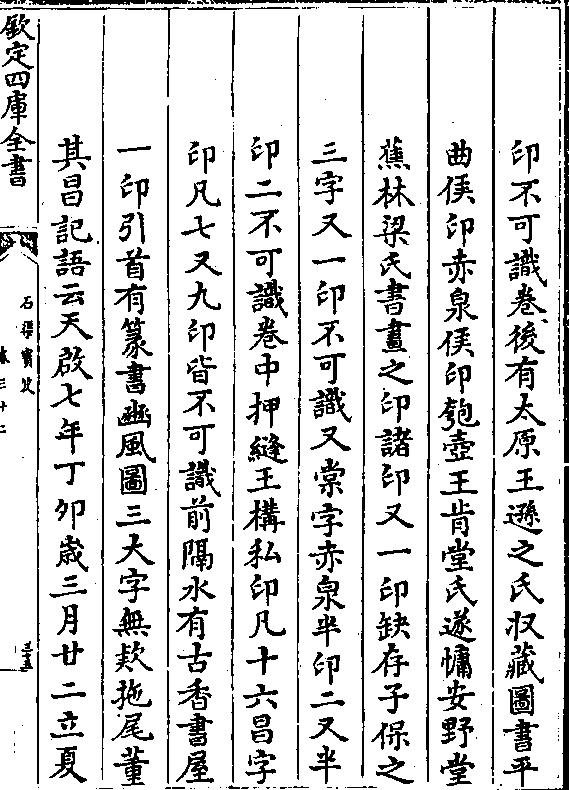 印不可識卷後有太原王遜之氏収藏圖書平
曲侯印赤泉侯印匏壺王肯堂氏遂慵安野堂
蕉林梁氏書畫之印諸印又一印缺存子保之
三字又一印不可識又棠字赤泉半印二又半
印二不可識卷中押縫王構私印凡十六昌字
印凡七又九印皆不可識前隔水有古香書屋
一印引首有篆書豳風圖三大字無欵拖尾董
其昌記語云天啟七年丁夘歳三月廿二立夏
欽定四庫全書
石渠寳笈
卷三十二